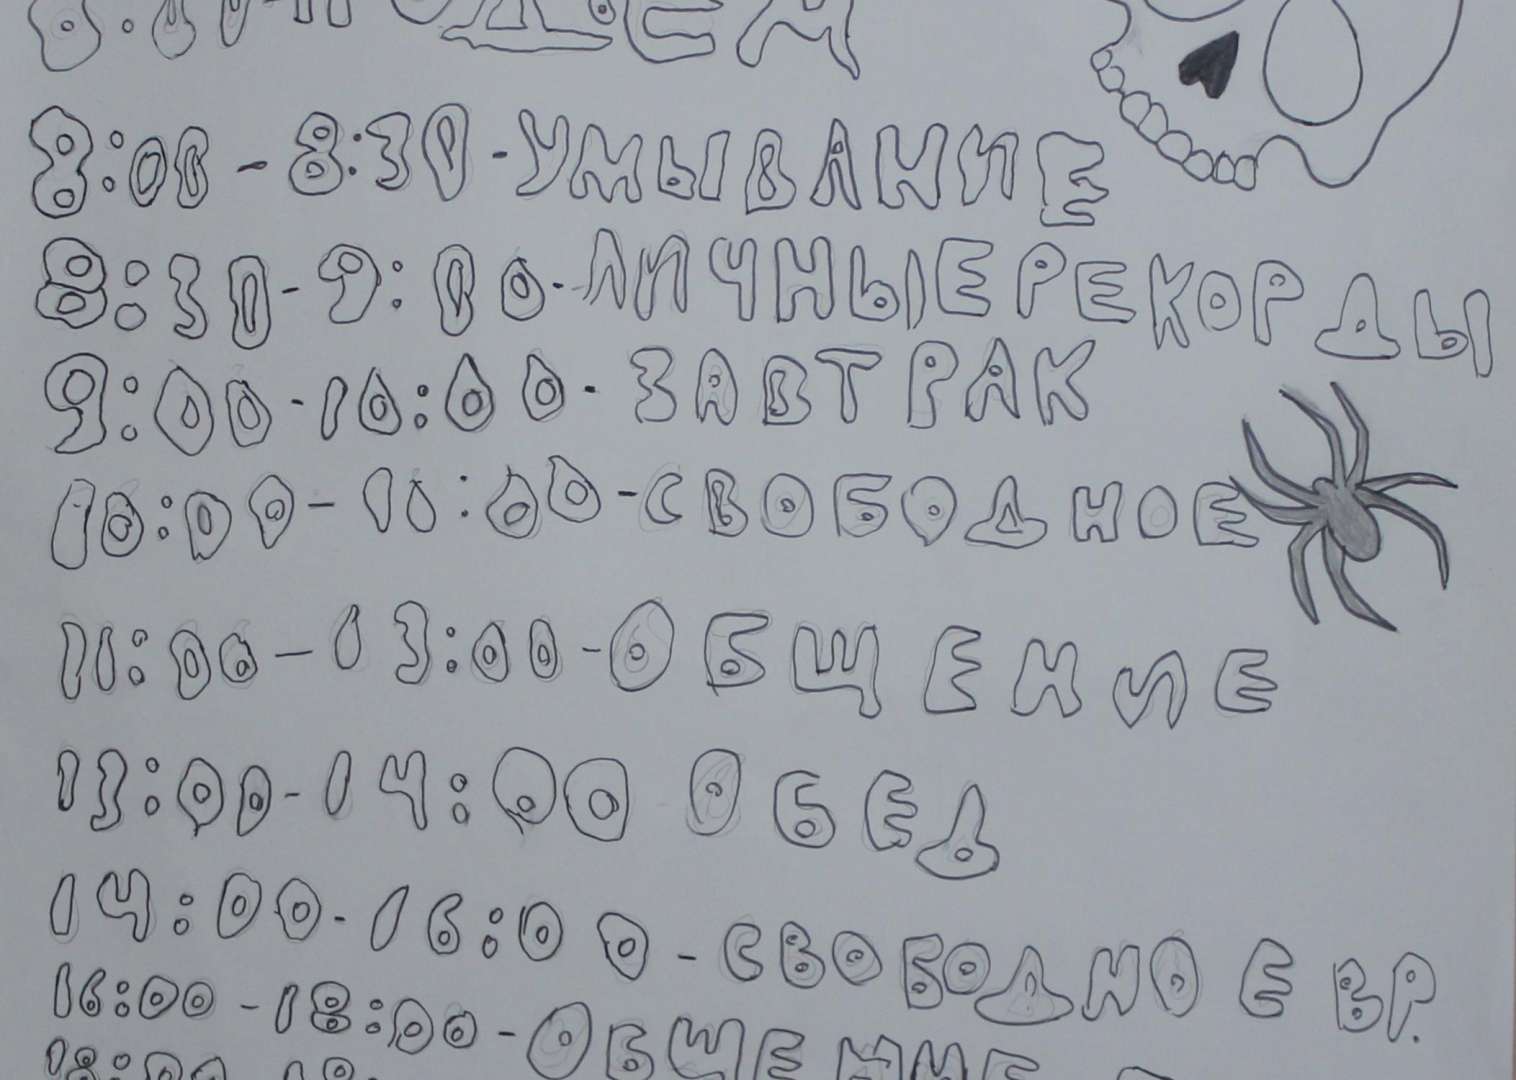 ПОДЪЕМ
8:00 - 8:30 - УМЫВАНИЕ
8:30 - 9:00 - ЛИЧНЫЕ РЕКОРДЫ
9:00 - 10:00 - ЗАВТРАК
10:00 - 11:00 - СВОБОДНОЕ
11:00 - 13:00 - ОБЩЕНИЕ
13:00 - 14:00 ОБЕД
14:00 - 16:00 - СВОБОДНОЕ ВР.
16:00 - 18:00 - ОБЩЕНИЕ